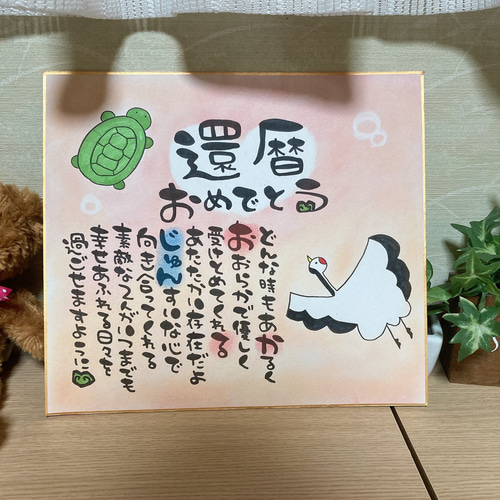 還暦
おめでとう
どんな時もあかるく
おおらかで優しく
受けとめてくれる
あたたかい存在だよ
じゅんすいな心で
向きあってくれる
素敵な
幸せあふれる日々を
過ごせますように